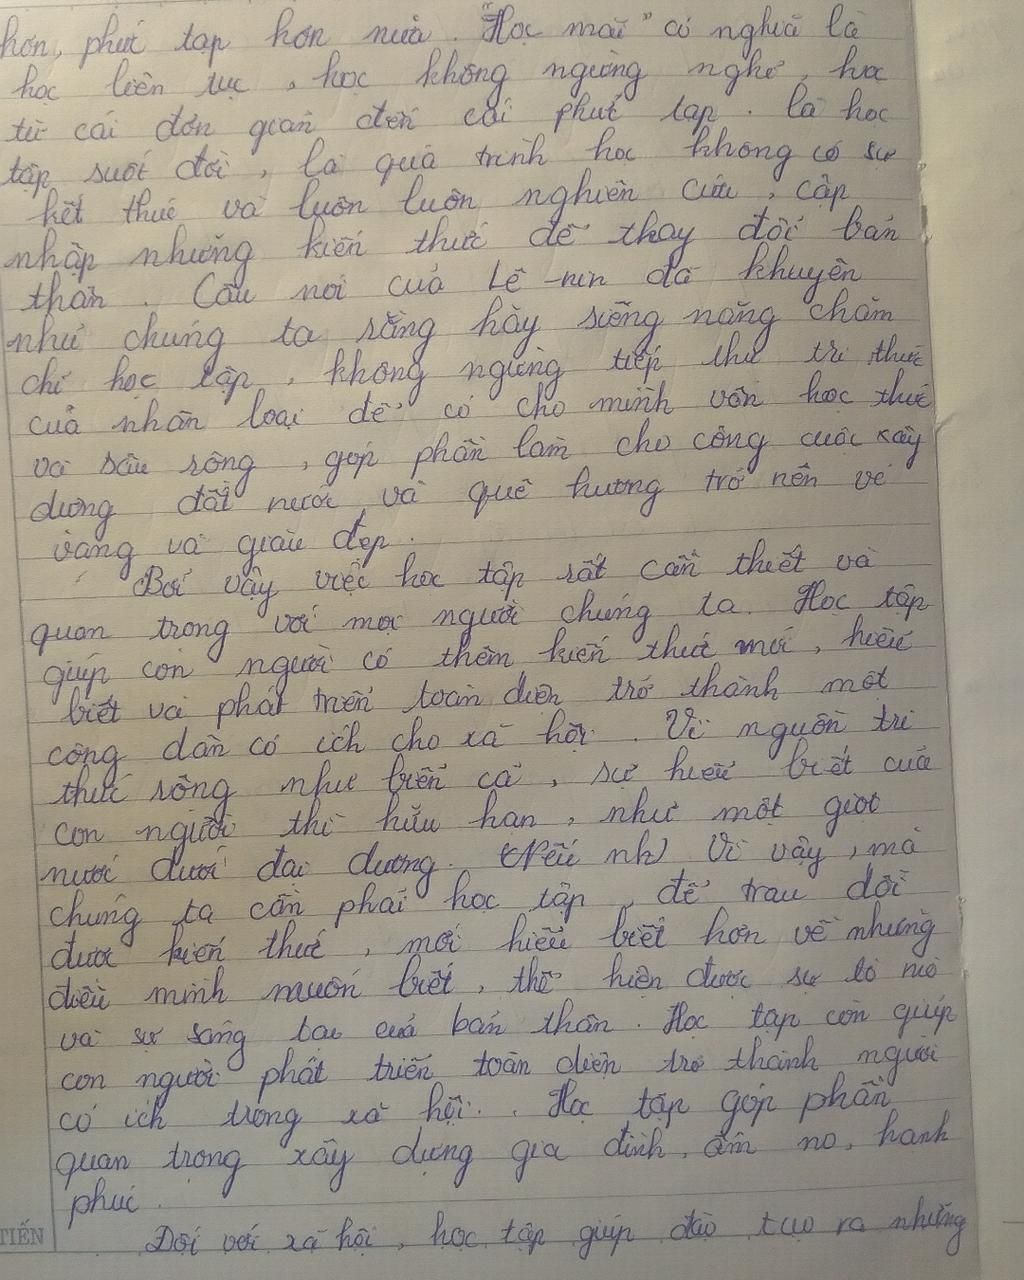 hơn, phức tạp hơn nữa. "Học mãi" có nghĩa là
học liên tục, học không ngừng nghỉ, học
từ cái đơn giản đến cái phức tạp. là học
tập suốt đời, là quá trình học không có sự
kết thúc và luôn luôn nghiên cứu, cập
nhập những kiến thức để thay đổi bản
thân. Câu nói của Lê-nin đã khuyên
nhủ chúng ta rằng hãy siêng năng chăm
chỉ học tập, không ngừng tiếp thu tri thức
của nhân loại để có cho mình vốn học thức
và sâu rộng, góp phần làm cho công cuộc xây
dựng đất nước và quê hương trở nên vẻ
vang và giàu đẹp.
Bởi vậy việc học tập rất cần thiết và
quan trọng với mọi người chúng ta. Học tập
giúp con người có thêm kiến thức mới, hiểu
biết và phát triển toàn diện trở thành một
công dân có ích cho xã hội. Vì nguồn tri
thức rộng như biển cả, sự hiểu biết của
con người thì hữu hạn, như một giọt
nước dưới đại dương. (Nếu nh) Vì vậy, mà
chúng ta cần phải học tập để trau dồi
được kiến thức, mới hiểu biết hơn về những
điều mình muốn biết, thể hiện được sự tò mò
và sự sáng tạo của bản thân. Học tập còn giúp
con người phát triển toàn diện trở thành người
có ích trong xã hội. Học tập góp phần
quan trọng xây dựng gia đình, ấm no, hạnh
phúc.
Đối với xã hội, học tập giúp đào tạo ra những
TIẾN